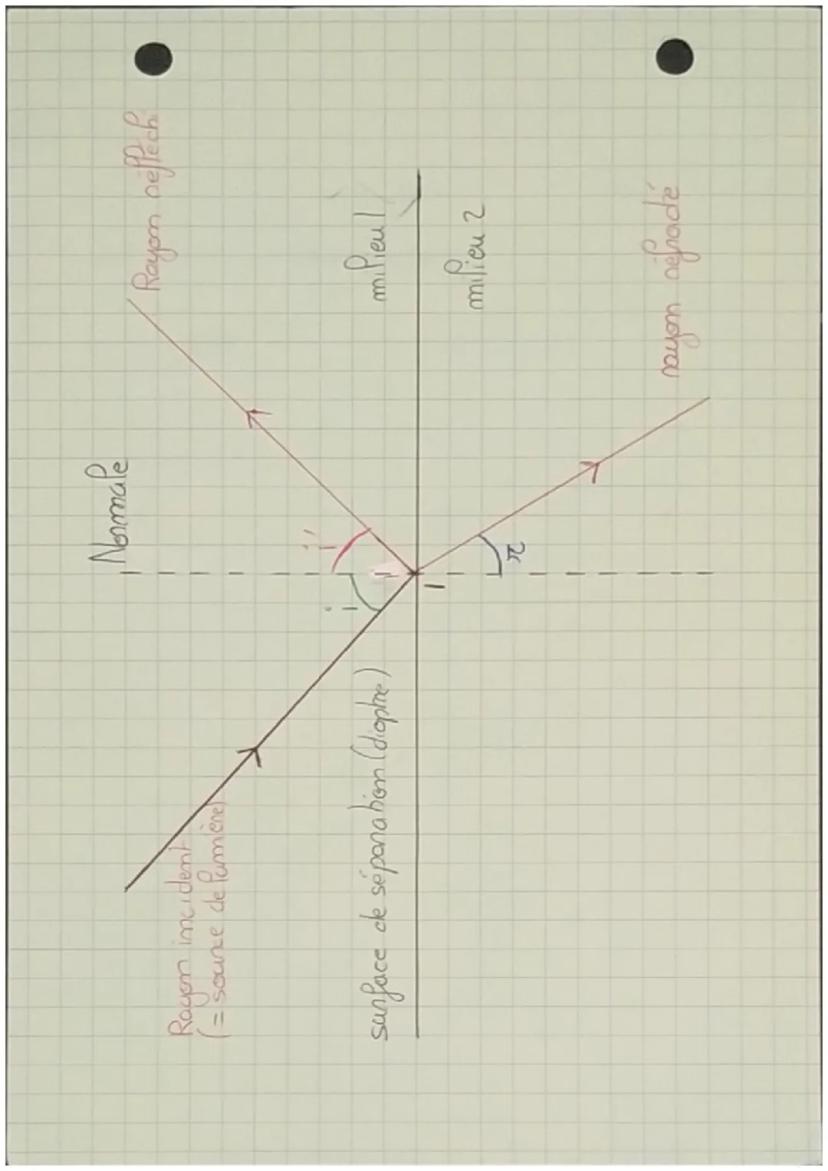 Normale
Rayon réfléchi
Rayon incident
(= source de lumière)
i'
i
surface de séparation (dioptre)
milieu 1
I
milieu 2
r
rayon réfracté